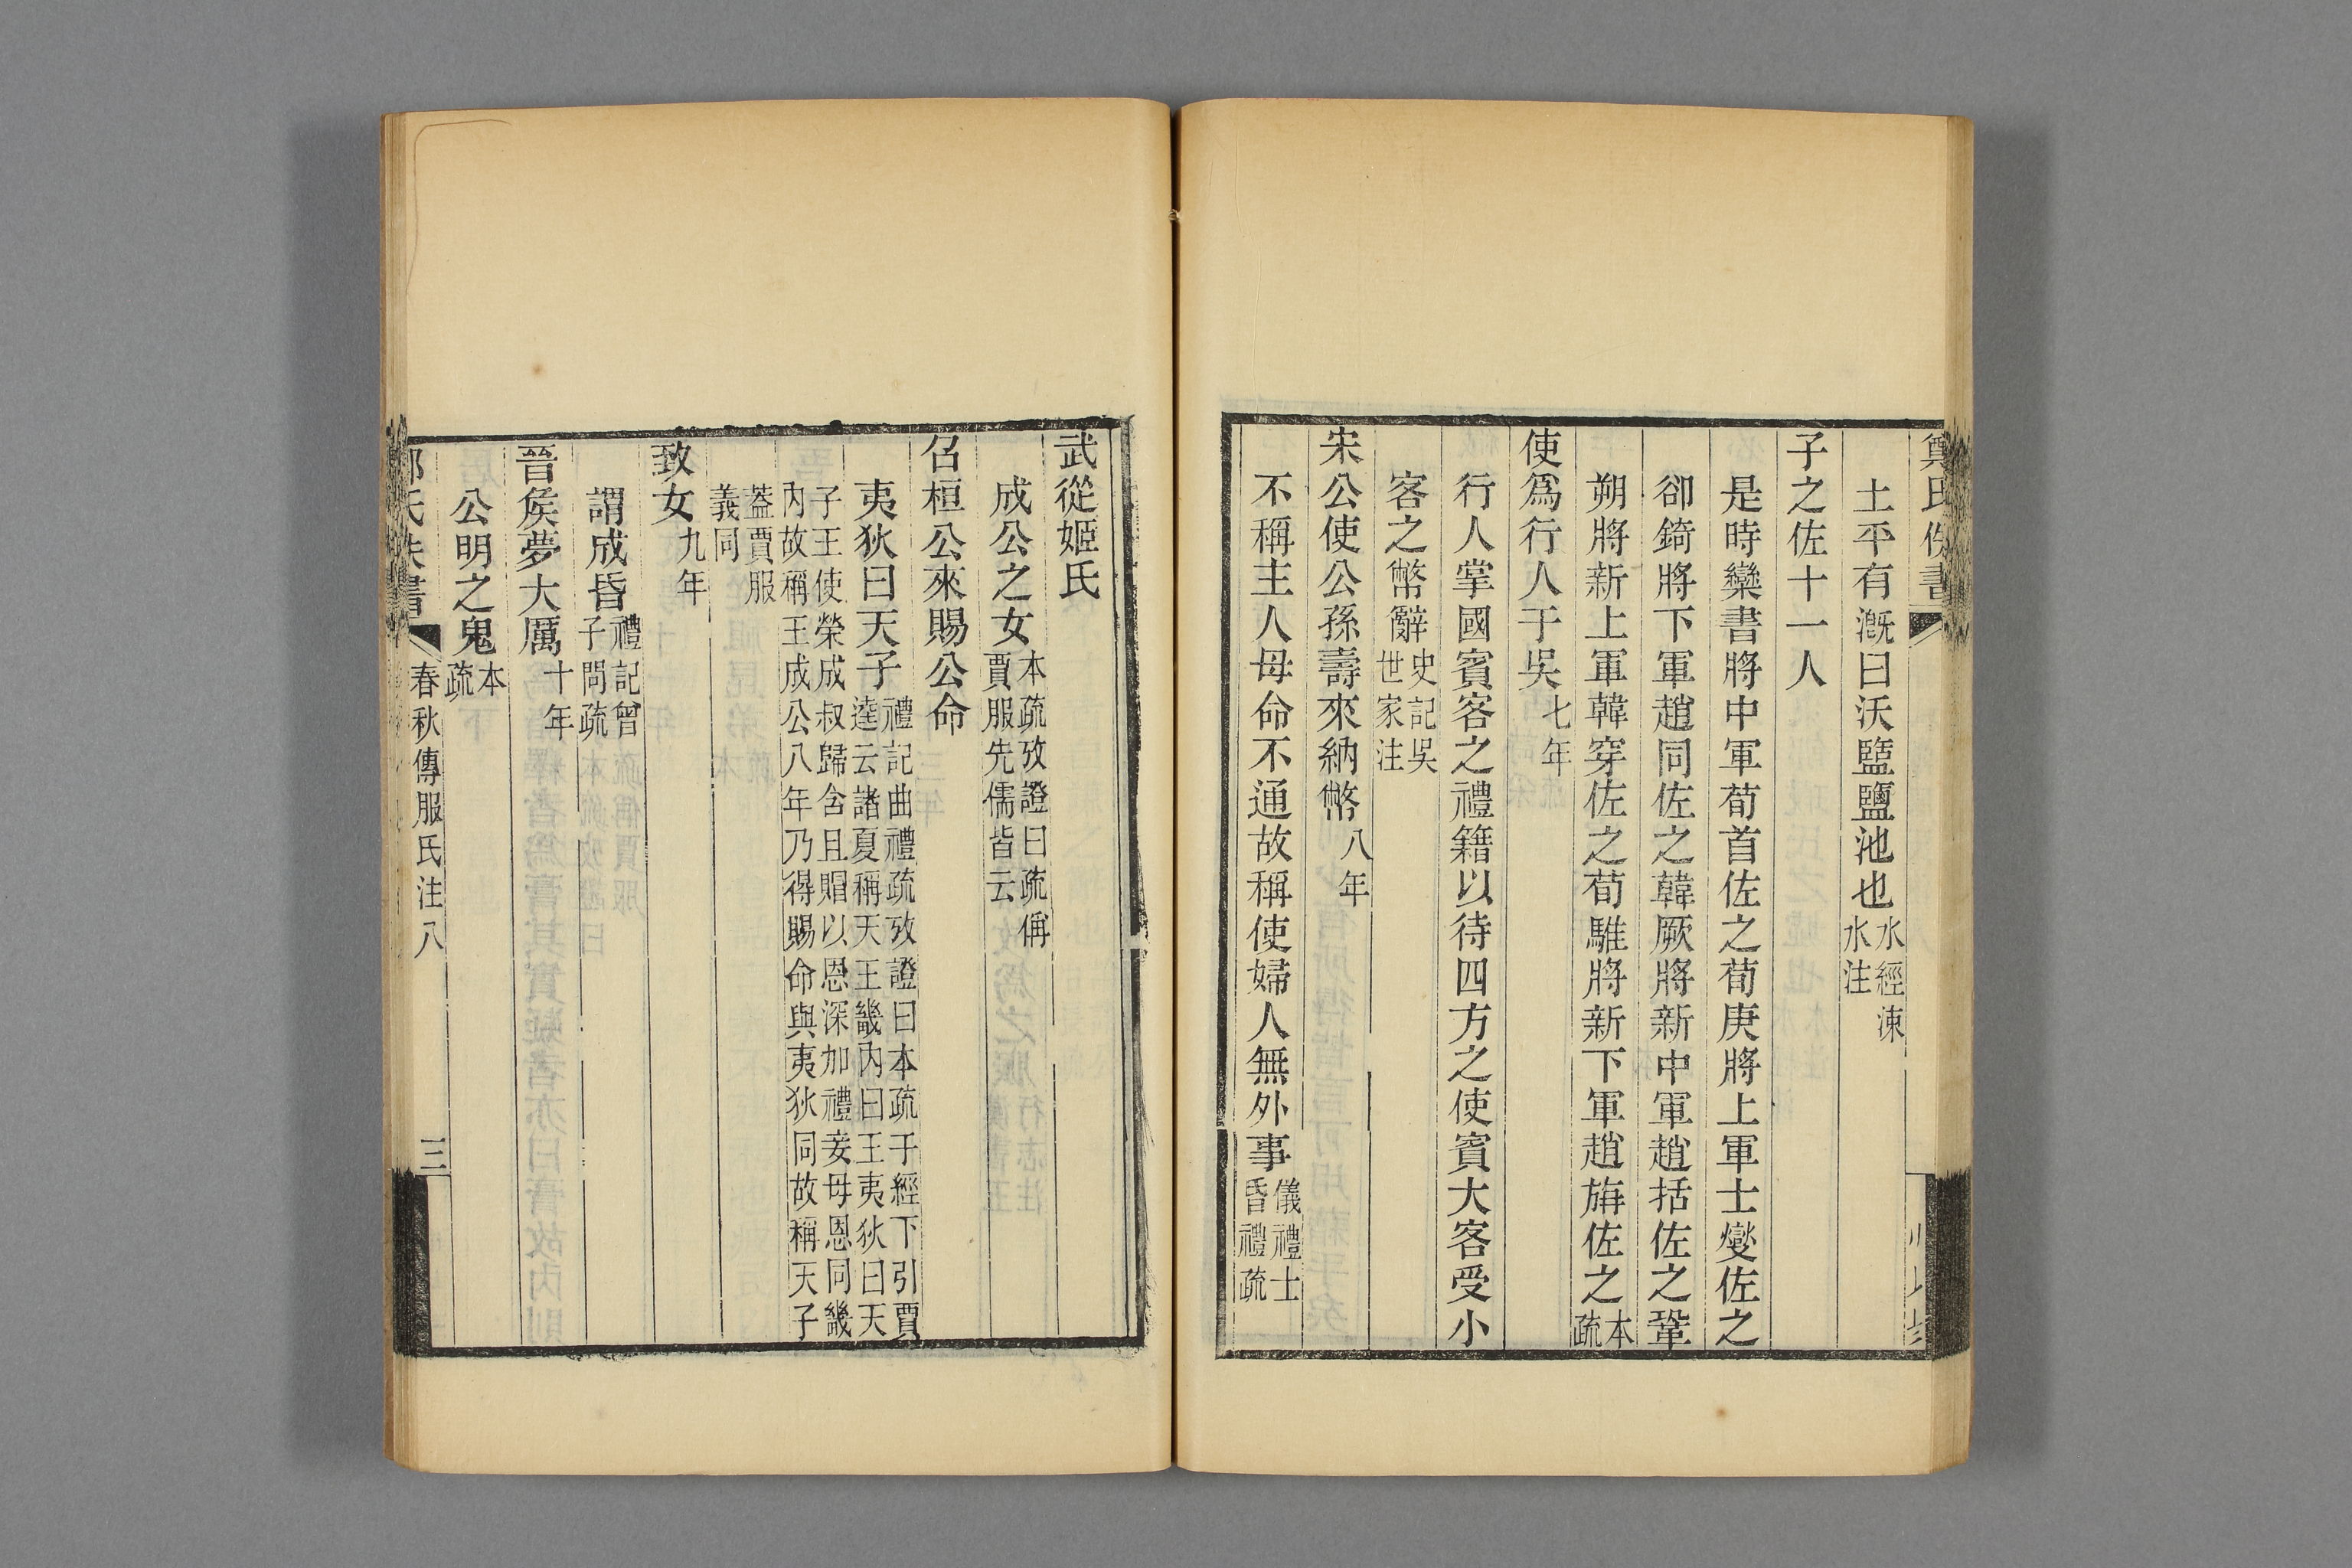 鄭氏佚書
土平有漑曰沃盬鹽池也水經涑
水注
子之佐十一人
是時欒書將中軍荀首佐之荀庚將上軍士燮佐之
卻錡將下軍趙同佐之韓厥將新中軍趙括佐之鞏
朔將新上軍韓穿佐之荀騅將新下軍趙旃佐之本
疏
使爲行人于吳七年
行人掌國賓客之禮籍以待四方之使賓大客受小
客之幣辭史記吳
世家注
宋公使公孫壽來納幣八年
不稱主人母命不通故稱使婦人無外事儀禮士
昏禮疏
武從姬氏
成公之女本疏攷證曰疏偁
賈服先儒皆云
召桓公來賜公命
夷狄曰天子禮記曲禮疏攷證曰本疏于經下引賈
逵云諸夏稱天王畿內曰王夷狄曰天
子王使榮成叔歸含且賵以恩深加禮妾母恩同畿
內故稱王成公八年乃得賜命與夷狄同故稱天子
葢賈服
義同
致女九年
謂成昏禮記曾
子問疏
晉矦夢大厲十年
公明之鬼本
疏
氏佚書
春秋傳服氏注八
三